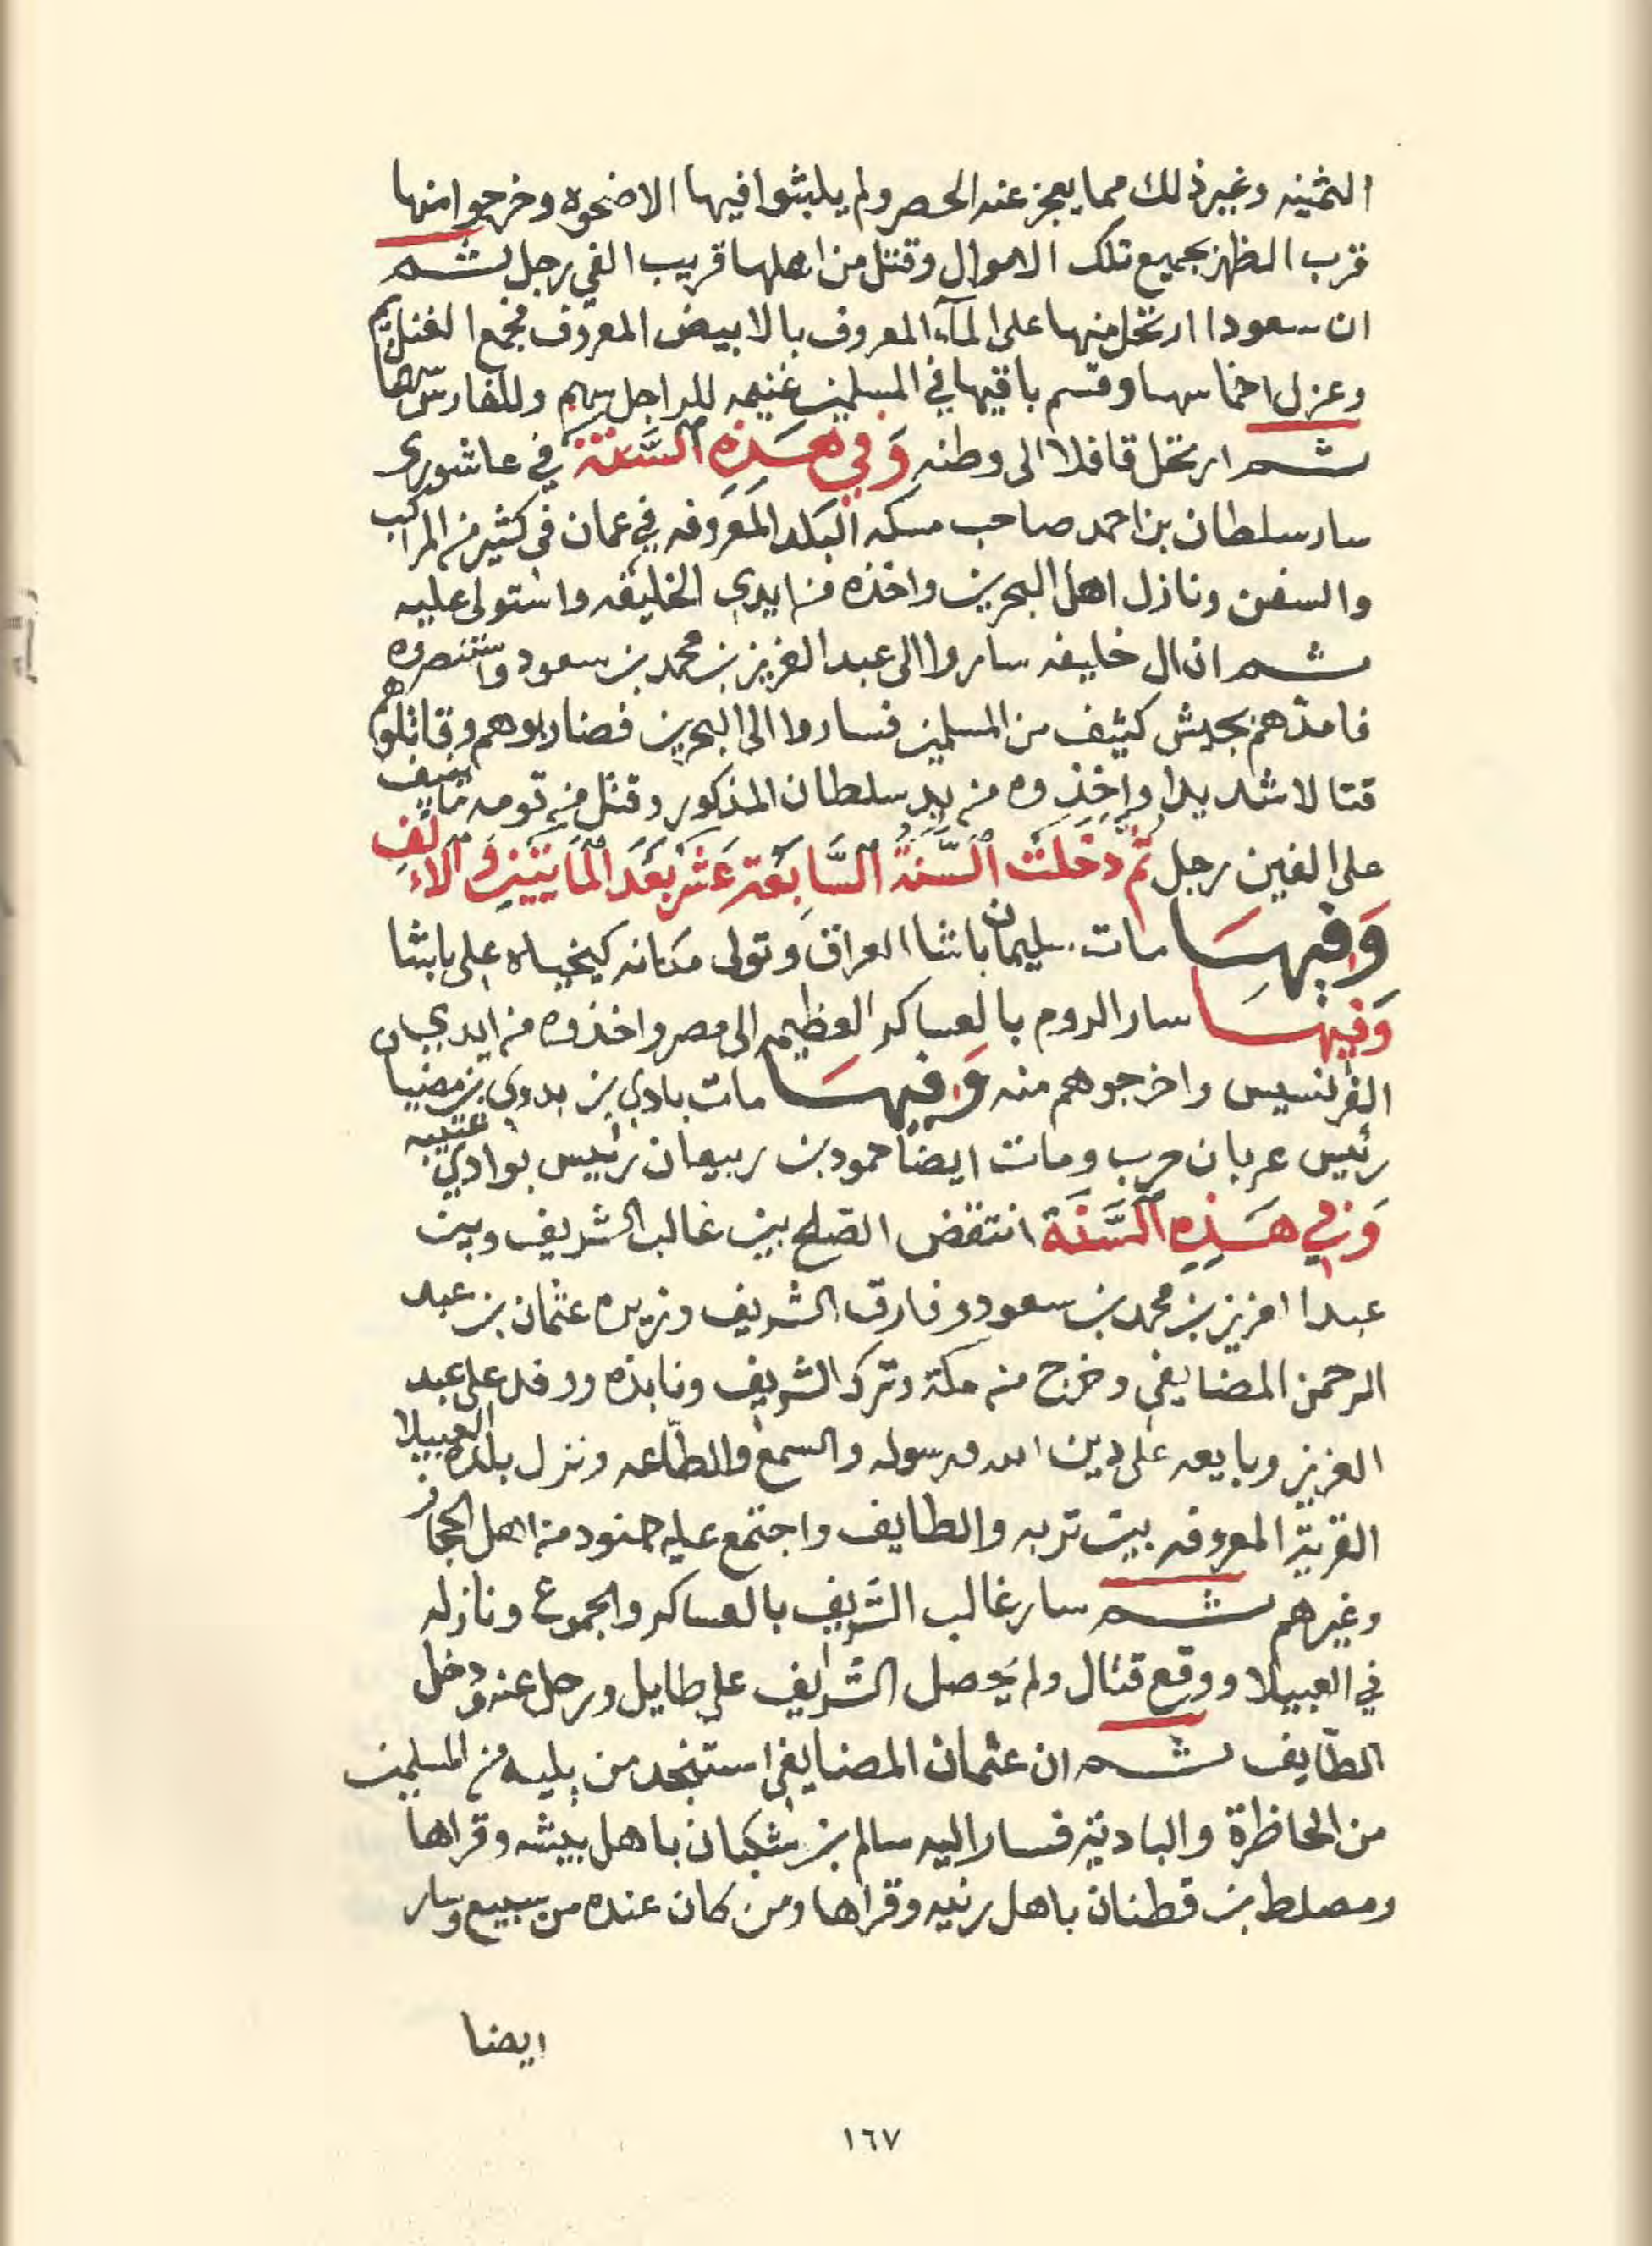 الثمينه وغير ذلك مما يعجز عنه الحصر ولم يلبثوا فيها الا ضحوه وخرجوا منها
قرب الظهر بجميع تلك الاموال وقتل من اهلها قريب الفي رجل ثم
ان سعودا ارتحل منها على المآء المعروف بالابيض المعروف فجمع الغنايم
وعزل اخماسها وقسم باقيها في المسلمين غنيمه للراجل سهم وللفارس سهمان
ثم ارتحل قافلا الى وطنه وَفي هَذِهِ السَّنَة في عاشوري
سار سلطان بن احمد صاحب مسكه البلد المعروفه في عمان في كثير من المراكب
والسفن ونازل اهل البحرين واخذه من ايدي الخليفه واستولى عليه
ثم ان ال خليفه ساروا الى عبد العزيز بن محمد بن سعود واستنصروه
فامدّهم بجيش كثيف من المسلمين فساروا الى البحرين فضاربوهم وقاتلوهم
قتالا شديدا واخذوه من يد سلطان المذكور وقتل من قومه ما ينيف
على الفين رجل ثمّ دَخَلَت السَّنَةُ السَّابِعَة عَشر بَعَد المَايَتَينِ وَالاَلِف
وَفِيهَا مات سليمان باشا العراق وتولى مكانه كيخياه على باشا
وَفِيهَا سار الروم بالعساكر العظيمه الى مصر واخذوه من ايدي
الفرنسيس واخرجوهم منه وَفيهَا مات بادي بن بدوي بن مضيان
رئيس عربان حرب ومات ايضًا حمود بن ربيعان رئيس بوادي عتيبه
وَفِي هَذِهِ السَّنَة انتقض الصّلح بين غالب الشريف وبين
عبدا لعزيز بن محمد بن سعود وفارق الشريف وزيره عثمان بن عبد
الرحمن المضايفي وخرج من مكة وترك الشريف ونابذه ووفد على عبد
العزيز وبايعه على دين الله ورسوله والسمع والطّاعه ونزل بلده العبيلا
القرية المعروفه بين تربه والطايف واجتمع عليه جنود من اهل الحجاز
وغيرهم ثم سار غالب الشريف بالعساكر والجموع ونازله
في العبيلا ووقع قتال ولم يحصل الشريف على طايل ورحل عنه ودخل
الطّايف ثم ان عثمان المضايفي استنجد من يليه من المسلمين
من الحاظرة والبادية فسار اليه سالم بن شكبان باهل بيشه وقراها
ومصلط بن قطنان باهل رنيه وقراها ومن كان عنده من سبيع وسار
ايضا
١٦٧